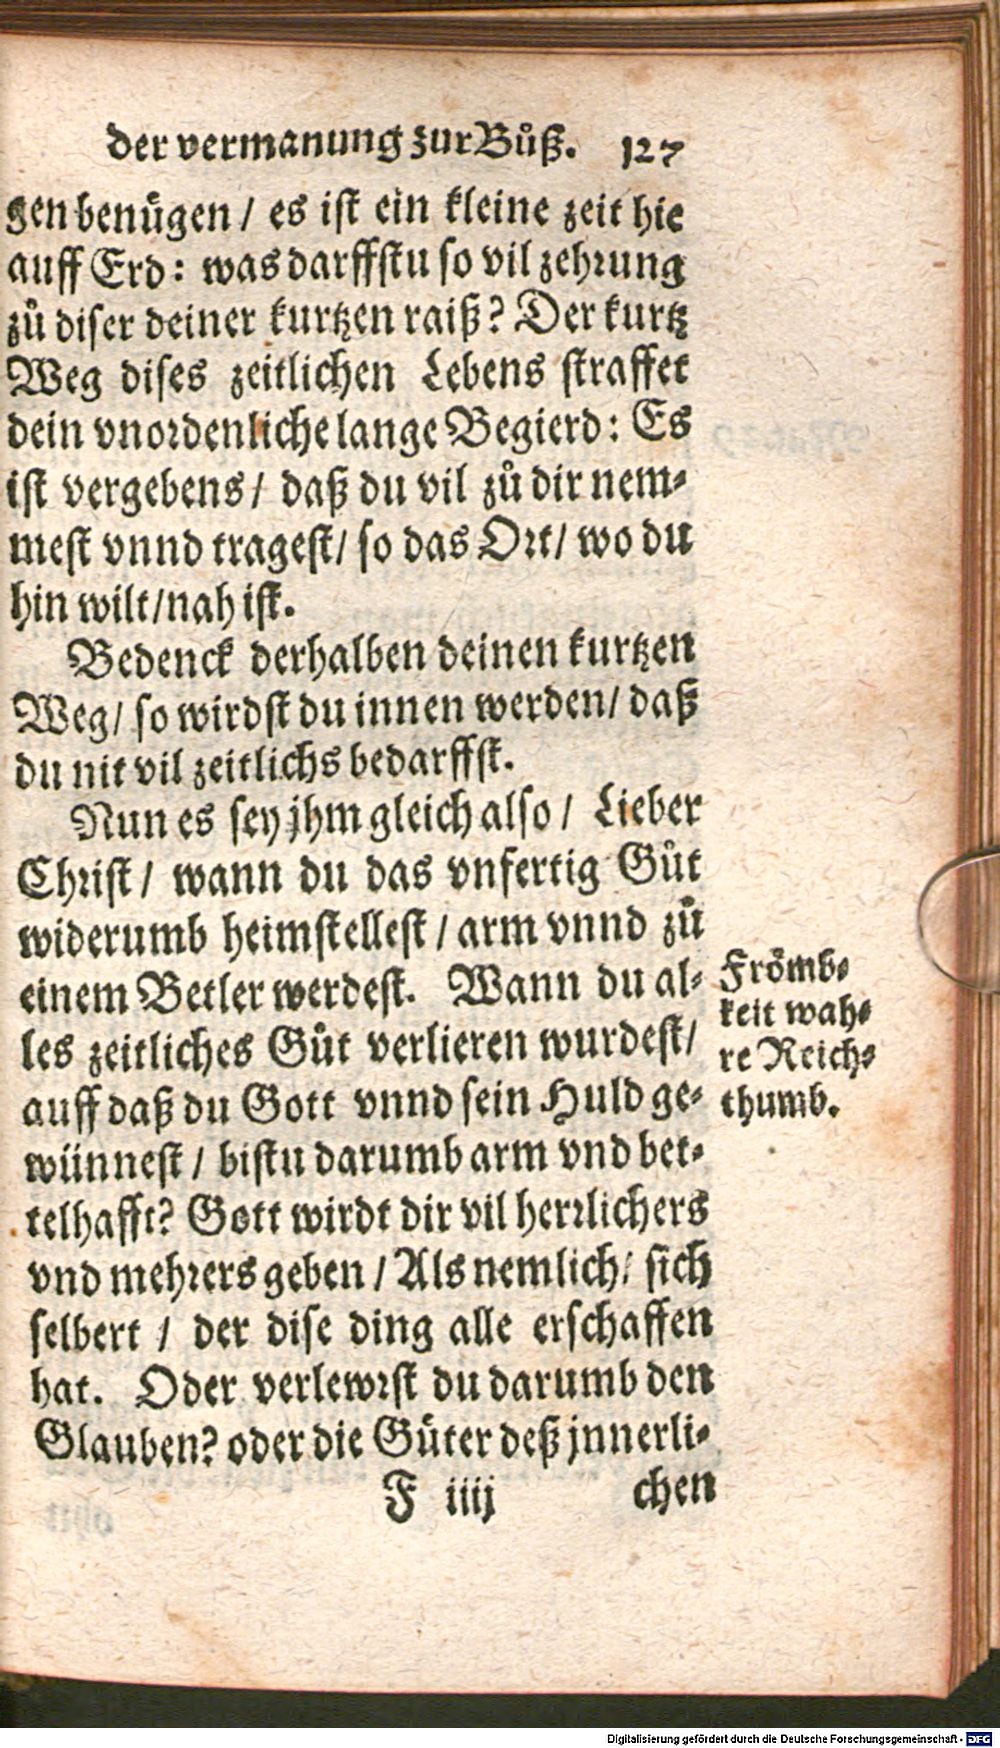 der vermanung zur Bůß. 127
gen benügen / es ist ein kleine zeit hie
auff Erd: was darffstu so vil zehrung
zů diser deiner kurtzen raiß? Der kurtz
Weg dises zeitlichen Lebens straffet
dein vnordenliche lange Begierd: Es
ist vergebens / daß du vil zů dir nem-
mest vnnd tragest / so das Ort / wo du
hin wilt / nah ist.
Bedenck derhalben deinen kurtzen
Weg / so wirdst du innen werden / daß
du nit vil zeitlichs bedarffst.
Nun es sey jhm gleich also / Lieber
Christ / wann du das vnfertig Gůt
widerumb heimstellest / arm vnnd zů
einem Betler werdest. Wann du al-
les zeitliches Gůt verlieren wurdest /
auff daß du Gott vnnd sein Huld ge-
wünnest / bistu darumb arm vnd bet-
telhafft? Gott wirdt dir vil herrlichers
vnd mehrers geben / Als nemlich / sich
selbert / der dise ding alle erschaffen
hat. Oder verlewrst du darumb den
Glauben? oder die Gůter deß jnnerli-
F iiij chen
Frömb-
keit wah-
re Reich-
thumb.
Digitalisierung gefördert durch die Deutsche Forschungsgemeinschaft - DFG